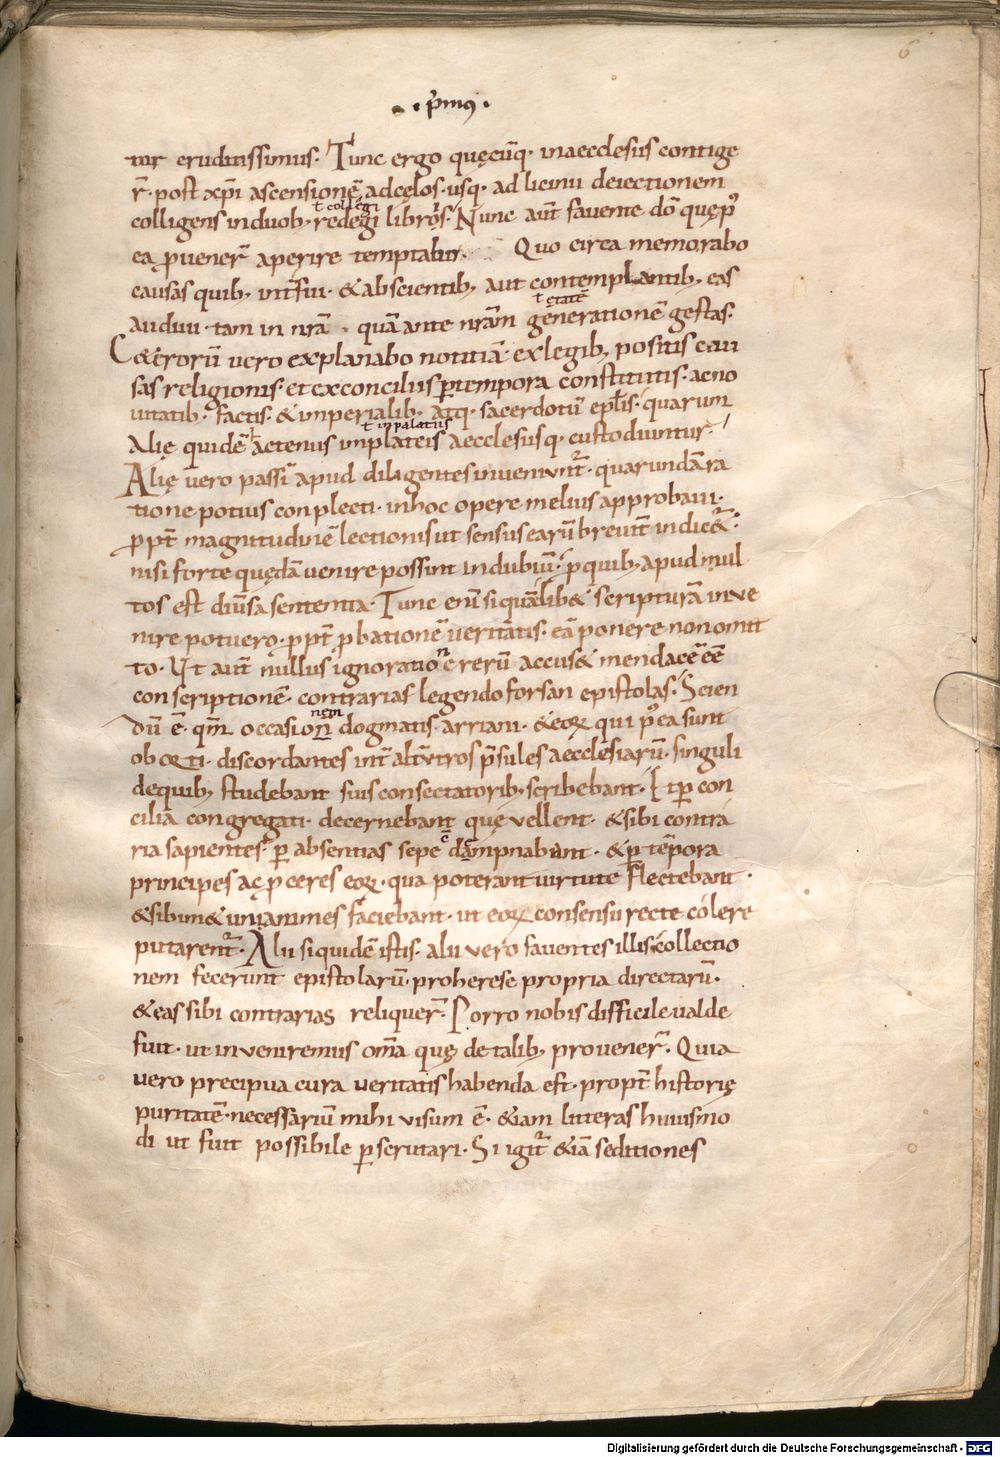 6
· p̄mus ·
tur eruditissimus. Tunc ergo quęcūq; in aecclesiis contige
r̄. post xp̄i ascensionē ad cęlos. usq; ad licinii deiectionem
ł collegi
colligens in duob; redegi libros. Nunc aut̄ favente dō quę p̄
ea puener̄ aperire temptabo. Quo circa memorabo
causas quib; int̄fui. & ab scientib; aut contemplantib; eas
ł ętatē
audivi. tam in nr̄a. quā ante nr̄am generationē gestas.
C&erorū vero explanabo notitiā ex legib; positis cau
sas religionis. et ex conciliis p tempora constitutis. ac no
vitatib; factis. & imperialib; atq; sacerdotū epl̄is. quarum
ł in palatiis
Alię quidē actenus in plateis aecclesiisq; custodiuntur.
Alię vero passī apud diligentes inveniunt̄. quarundā ra
tione potius conplecti. in hoc opere melius approbavi.
ppt̄ magnitudinē lectionis ut sensus earū brevit̄ indic&̄.
nisi forte quędā venire possint in dubiū. p quib; apud mul
tos est div̄sa sententia. Tunc enī si quālib& scripturā inve
nire potuero. ppt̄ pbationē veritatis. eā ponere non omit
to. Ut aut̄ nullus ignoratione rerū accus& mendacē eē
conscriptionē. contrarias legendo forsan epistolas. Scien
nem
dū ē. qm̄ occasion dogmatis arriani. & eoꝝ qui p̄ ea sunt
ob orti. discordantes int̄ alt̄utros p̄sules aecclesiarū. singuli
de quib; studebant suis consectatorib; scribebant. It p con
cilia congregati. decernebant quę vellent. & sibi contra
ria sapientes. p absentias sepe dampnabant. & p tēpora
principes ac pceres eoꝝ. qua poterant virtute flectebant.
& sibim& unianimes faciebant. ut eoꝝ consensu recte colere
putarent̄. Alii siquidē istis. alii vero faventes illis collectio
nem fecerunt epistolarū. pro herese propria directarū.
& eas sibi contrarias reliquer̄. Porro nobis difficile valde
fuit. ut inveniremus om̄a quę de talib; provener̄. Quia
vero precipua cura veritatis habenda est. propt̄ historię
puritatē. necessariū mihi visum ē. &iam litteras huiusmo
di ut fuit possibile pscrutari. Si igit̄ &iā seditiones
Digitalisierung gefördert durch die Deutsche Forschungsgemeinschaft - DFG